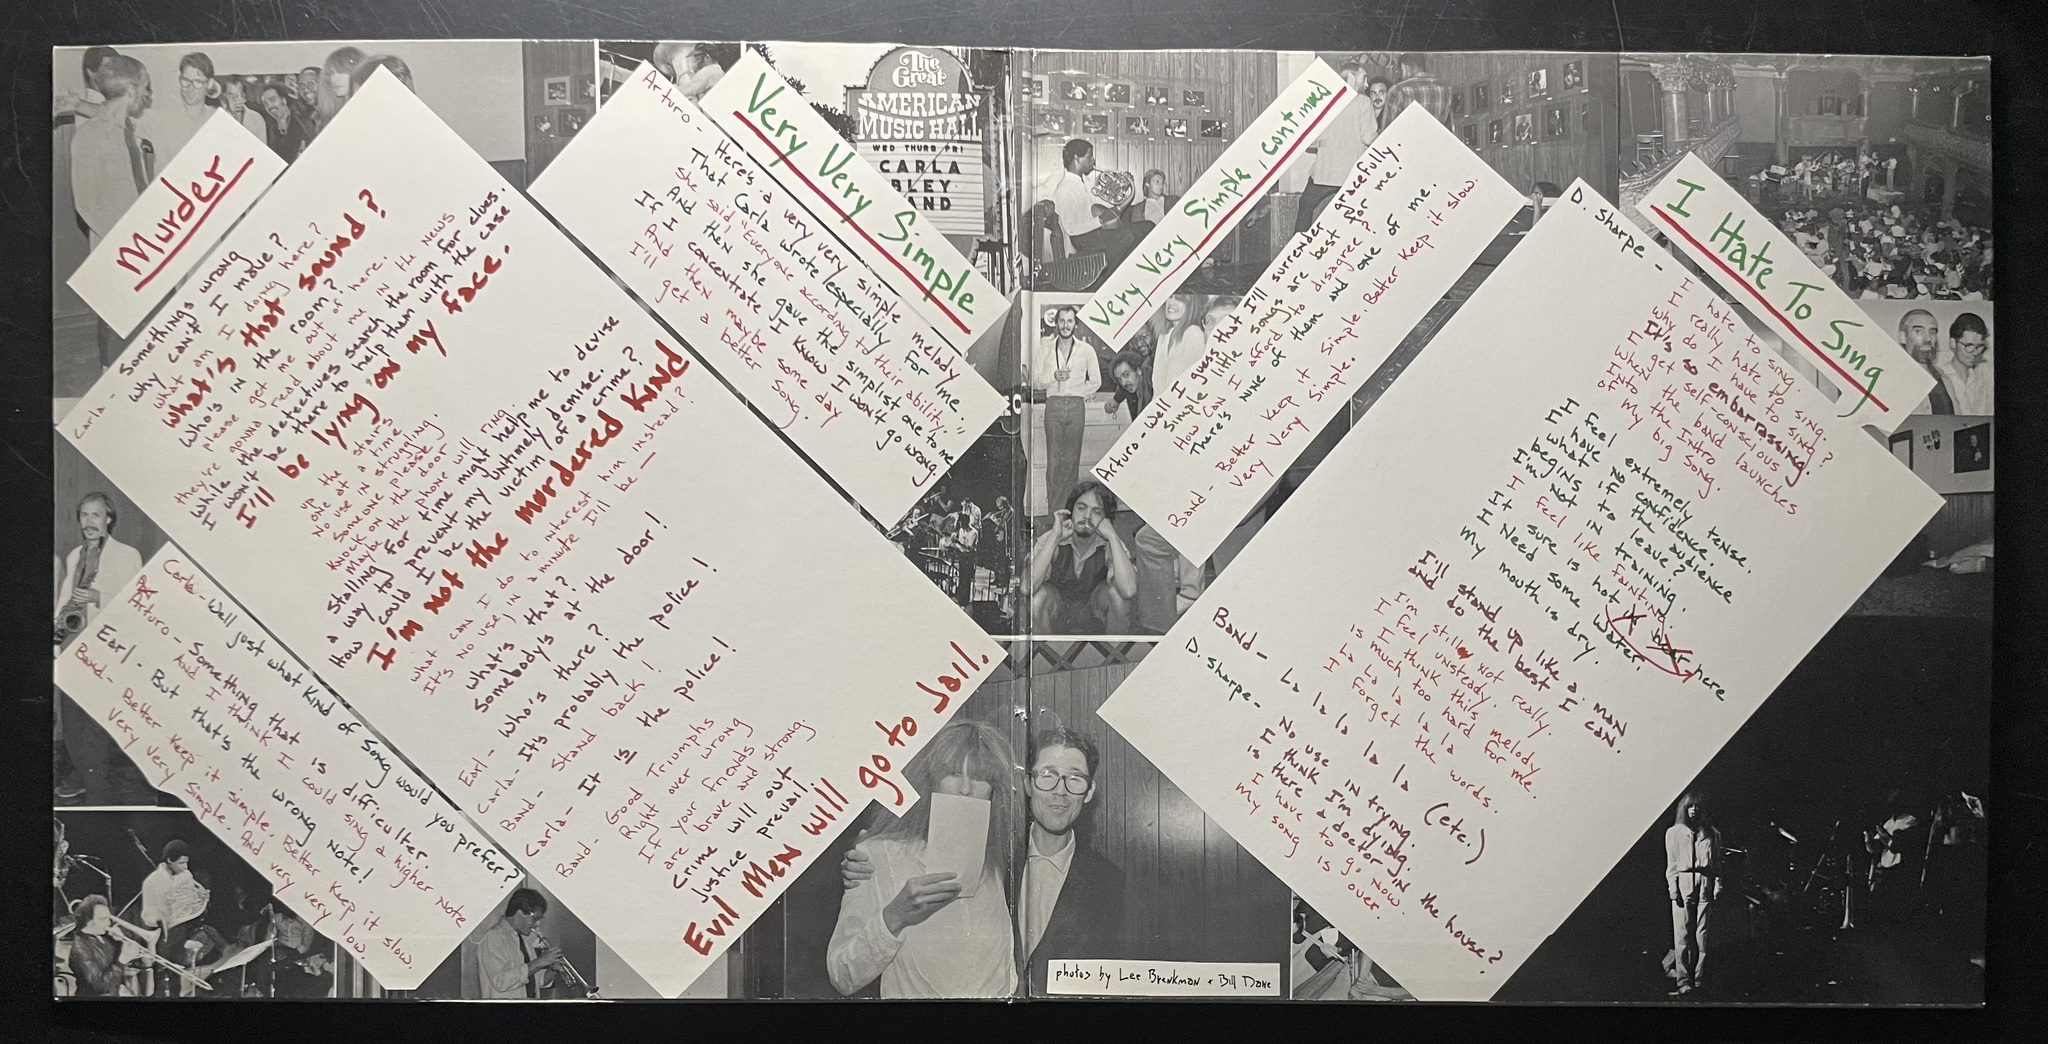 Murder
Carla - Something's wrong
Why can't I move?
What am I doing here?
What's that sound?
Who's in the room?
Please get me out of here.
they're gonna read about me in the news
While the detectives search the room for clues.
I won't be there to help them with the case
I'll be lying on my face.
up the stairs
one at a time
No use in struggling.
Someone please
Knock on the door
Maybe the phone will ring.
Stalling for time might help me to devise
a way to prevent my untimely demise.
How could I be the victim of a crime?
I'm not the murdered kind
What can I do to interest him instead?
It's no use, in a minute I'll be —
What's that?
Somebody's at the door!
Earl - Who's there?
Carla - It's probably the police!
Band - Stand back!
Carla - It is the police!
Band - Good Triumphs
Right over wrong
If your friends
are brave and strong.
Crime will out
Justice prevail.
Evil Men will go to Jail.
Very Very Simple
Arturo - Here's a very very simple melody
That Carla wrote especially for me.
She said, "Everyone according to their ability."
And then she gave the simplist one to me
If I concentrate I know I won't go wrong.
And then maybe some day
I'll get a better song.
Carla - Well just what kind of song would you prefer?
Arturo - Something that is difficulter.
And I think I could sing a higher note
Earl - But that's the wrong note!
Band - Better keep it simple. Better keep it slow.
Very very simple. And very very low.
The Great
AMERICAN
MUSIC HALL
WED THURS FRI
CARLA
BLEY
BAND
Very Very Simple, continued
Arturo - Well I guess that I'll surrender gracefully.
Simple little songs are best for me.
How can I afford to disagree?
There's nine of them and one of me.
Band - Better keep it simple. Better keep it slow.
Very Very Simple.
I Hate To Sing
D. Sharpe - I hate to sing.
I really hate to sing.
Why do I have to sing?
It's so embarrassing.
I get self-conscious
When the band launches
Into the Intro
of my big song.
I feel extremely tense.
I have no confidence.
What if the audience
begins to leave?
I'm not in training.
I feel like fainting.
It sure is hot in here
I need some water.
My mouth is dry.
I'll stand up like a man
and do the best I can.
I'm still not really.
I feel unsteady.
I think this melody
is much too hard for me.
La La la la la
I forget the words.
Band - La la la la la la (etc.)
D. Sharpe - No use in trying.
I think I'm dying.
is there a doctor in the house?
I have to go, now.
My song is over.
photos by Lee Brenkman + Bill Dane